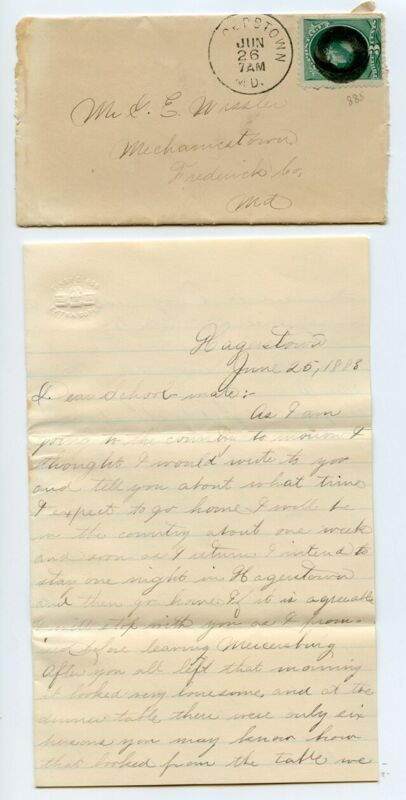 GERSTOWN
JUN
26
7AM
MD.
885
Mr. E. Wissler
Mechanicstown
Frederick Co,
Md
Hagerstown
June 25, 1883
Dear School mate:-
As I am
going to the country to morrow I
thought I would write to you
and tell you about what time
I expect to go home. I will be
in the country about one week
and soon as I return I intend to
stay one night in Hagerstown
and then go home. If it is agreeable
I will stop with you as I prom-
ised before leaving Mercersburg
After you all left that morning
it looked very lonesome, and at the
dinner table there were only six
persons you may know how
that looked from the table we